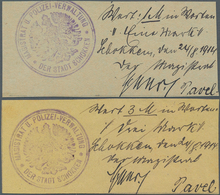 MAGISTRAT U. POLIZEI-VERWALTUNG
DER STADT SCHOKKEN
Wert: 1 M in Worten
Eine Mark
Schokken, den 24/8 1914
Der Magistrat
Pavel
MAGISTRAT U. POLIZEI-VERWALTUNG
DER STADT SCHOKKEN
Wert 3 M in Worten
Drei Mark
Schokken, den 24/8 1914
Der Magistrat
Pavel